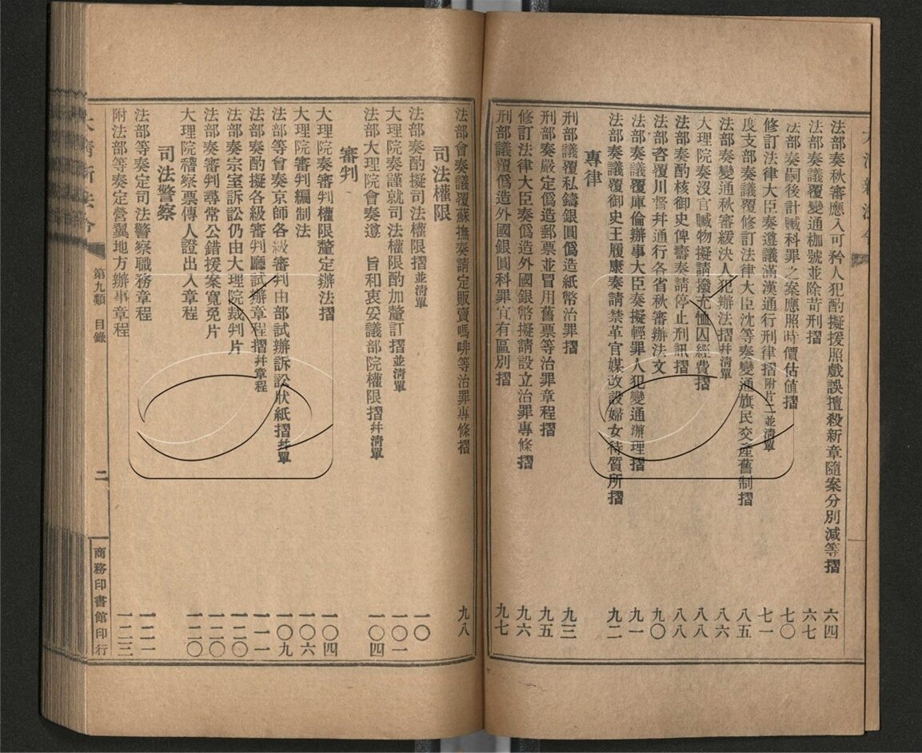 法部奏秋審應入可矜人犯酌擬援照戲誤擅殺新章隨案分別減等摺 六四
法部奏議覆變通枷號並除苛刑摺 六七
法部奏嗣後計贓科罪之案應照時價估値摺 七〇
修訂法律大臣奏遵議滿漢通行刑律摺附片二並清單 七一
度支部奏議覆修訂法律大臣沈等奏變通旗民交產舊制摺 八五
法部奏變通秋審緩決人犯辦法摺幷清單 八六
大理院奏沒官贓物擬請撥充恤囚經費摺 八八
法部奏酌核御史俾壽奏請停止刑訊摺 八八
法部咨覆川督幷通行各省秋審辦法文 九〇
法部奏議覆庫倫辦事大臣奏擬輕罪人犯變通辦理摺 九一
法部奏議覆御史王履康奏請禁革官媒改設婦女待質所摺 九二
專律
刑部議覆私鑄銀圓僞造紙幣治罪摺 九三
刑部奏嚴定僞造郵票並冒用舊票等治罪章程摺 九五
修訂法律大臣奏僞造外國銀幣擬請設立治罪專條摺 九六
刑部議覆僞造外國銀圓科罪宜有區別摺 九七
法部會奏議覆蘇撫奏請定販賣嗎啡等治罪專條摺 九八
司法權限
法部奏酌擬司法權限摺並清單 一〇〇
大理院奏謹就司法權限酌加釐訂摺並清單 一〇一
法部大理院會奏遵 旨和衷妥議部院權限摺幷清單 一〇四
審判
大理院奏審判權限釐定辦法摺 一〇四
大理院審判編制法 一〇六
法部等會奏京師各級審判由部試辦訴訟狀紙摺幷單 一〇九
法部奏酌擬各級審判廳試辦章程摺幷章程 一一一
法部奏宗室訴訟仍由大理院裁判片 一二〇
法部奏審判尋常公錯援案寬免片 一二〇
大理院稽察票傳人證出入章程 一二〇
司法警察
法部等奏定司法警察職務章程 一二一
附法部等奏定營翼地方辦事章程 一二三
大清新法令
第九類 目錄
二
商務印書館印行